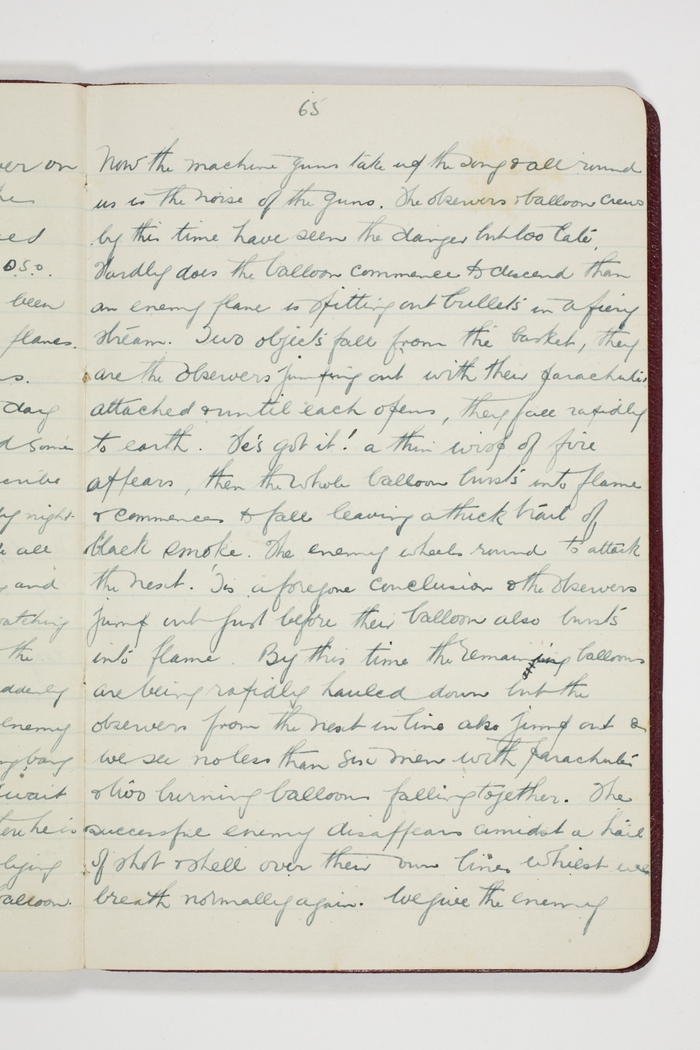 65
Now the machine guns take up the song & all round
us is the noise of the guns. The observers & balloon crews
by this time have seen the danger but too late.
Hardly does the balloon commence to descend than
an enemy plane is spitting out bullets in a fiery
stream. Two objects fall from the basket, they
are the observers jumping out with their parachutes
attached & until each opens, they fall rapidly
to earth. He's got it! a thin wisp of fire
appears, then the whole balloon bursts into flame
& commences to fall leaving a thick trail of
black smoke. The enemy wheels round to attack
the next. 'Tis a foregone conclusion & the observers
jump out just before their balloon also bursts
into flame. By this time the remaining balloons
are being rapidly hauled down but the
observers from the next in line also jump out &
we see no less than six men with parachutes
& two burning balloons falling together. The
successful enemy disappears amidst a hail
of shot & shell over their own lines whilst we
breath normally again. We give the enemy
ver on
D.S.O.
been
planes.
day
d some
night-
all
and
atching
the
ddenly
enemy
bang
wait
ere he is
lying
balloon.